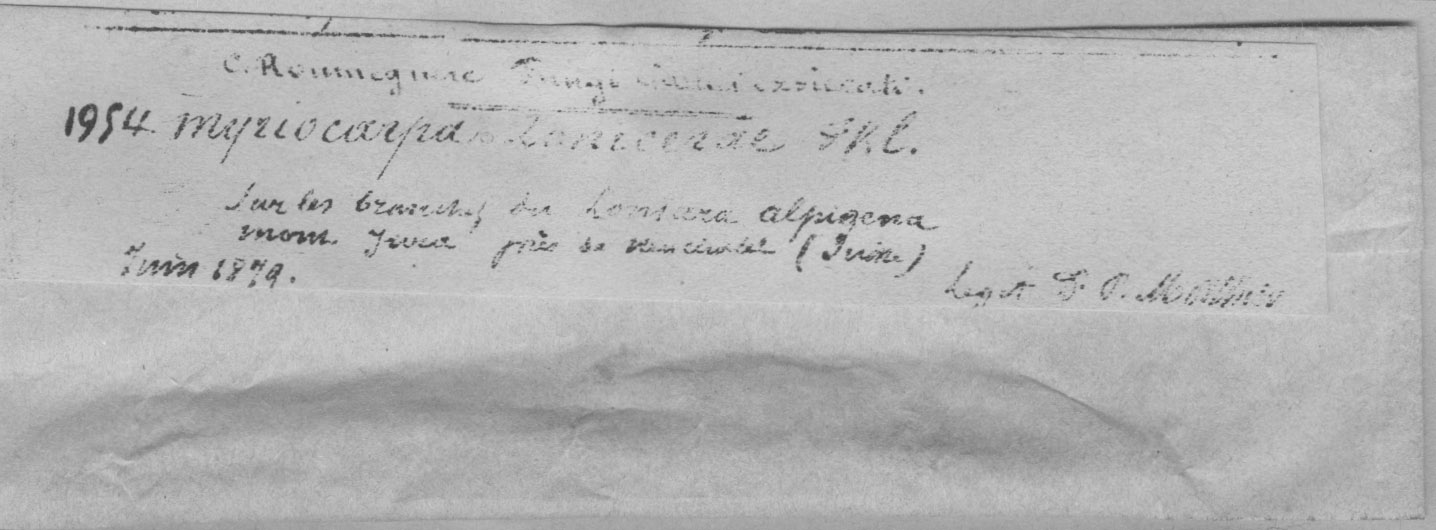 C. Roumeguere Fungi Gallici exsiccati.
1954 Myriocarpa Lonicerae Fkl.
Sur les branches du Lonicera alpigena
mont Jura près de Neuchatel (Suisse)
Juin 1879.
Legit D P. Morthier